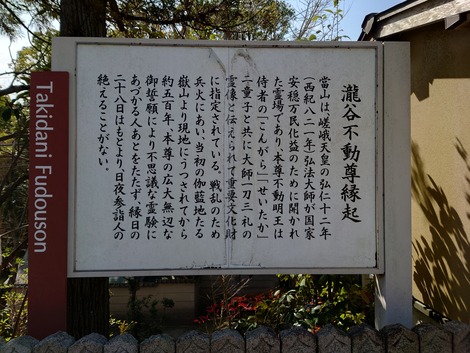 瀧谷不動尊縁起
當山は嵯峨天皇の弘仁十二年
(西紀八二一年)弘法大師が国家
安穏万民化益のために開かれ
た霊場であり、本尊不動明王は
侍者の「こんがら」「せいたか」
二童子と共に大師一刀三礼の
霊像と伝えられて重要文化財
に指定されている。戦乱のため
兵火にあい、当初の伽藍地たる
嶽山より現地にうつされてから
約五百年、本尊の広大無辺な
御誓願により不思議な霊験に
あづかる人あとをたたず、縁日の
二十八日はもとより日夜参詣人の
絶えることがない。
Takidani Fudouson